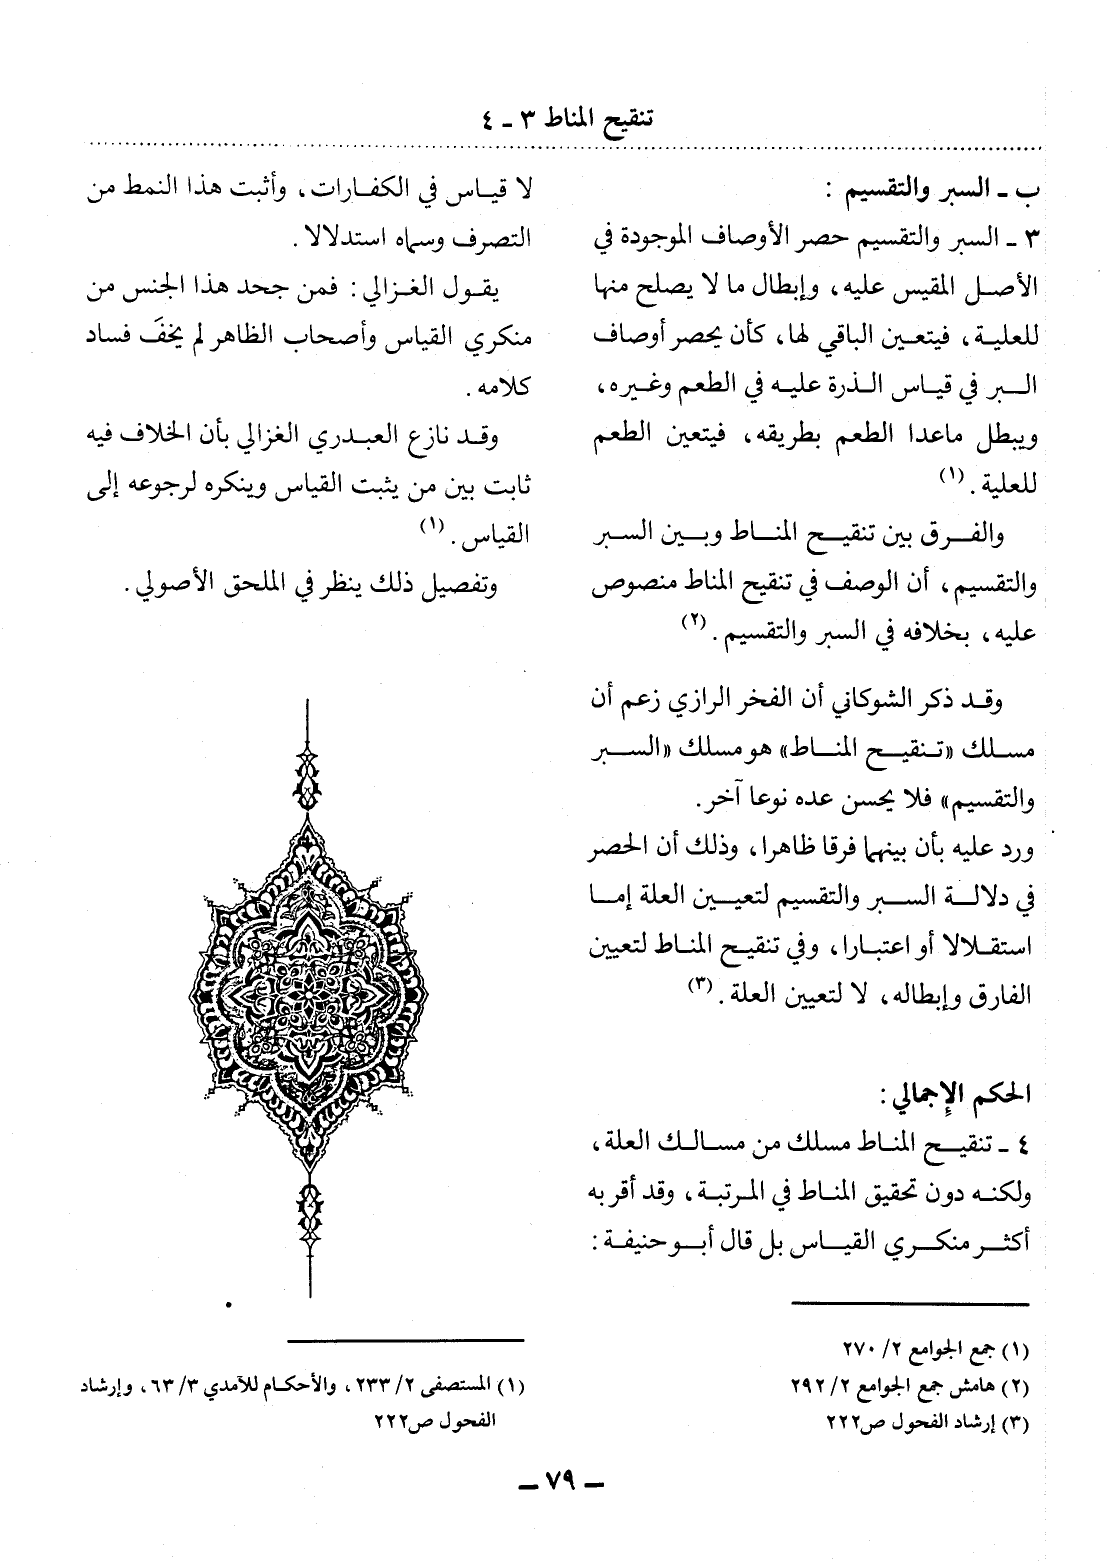 تنقيح المناط ٣ ـ ٤
ب ـ السبر والتقسيم :
٣ ـ السبر والتقسيم حصر الأوصاف الموجودة في
الأصل المقيس عليه، وإبطال ما لا يصلح منها
للعلية، فيتعين الباقي لها، كأن يحصر أوصاف
البر في قياس الذرة عليه في الطعم وغيره،
ويبطل ماعدا الطعم بطريقه، فيتعين الطعم
للعلية. (١)
والفرق بين تنقيح المناط وبين السبر
والتقسيم، أن الوصف في تنقيح المناط منصوص
عليه، بخلافه في السبر والتقسيم. (٢)
وقد ذكر الشوكاني أن الفخر الرازي زعم أن
مسلك «تنقيح المناط» هو مسلك «السبر
والتقسيم» فلا يحسن عده نوعا آخر.
ورد عليه بأن بينهما فرقا ظاهرا، وذلك أن الحصر
في دلالة السبر والتقسيم لتعيين العلة إما
استقلالا أو اعتبارا، وفي تنقيح المناط لتعيين
الفارق وإبطاله، لا لتعيين العلة. (٣)
الحكم الإجمالي :
٤ ـ تنقيح المناط مسلك من مسالك العلة،
ولكنه دون تحقيق المناط في المرتبة، وقد أقر به
أكثر منكري القياس بل قال أبو حنيفة :
(١) جمع الجوامع ٢/ ٢٧٠
(٢) هامش جمع الجوامع ٢/ ٢٩٢
(٣) إرشاد الفحول ص٢٢٢
لا قياس في الكفارات، وأثبت هذا النمط من
التصرف وسماه استدلالا.
يقول الغزالي : فمن جحد هذا الجنس من
منكري القياس وأصحاب الظاهر لم يخفَ فساد
كلامه.
وقد نازع العبدري الغزالي بأن الخلاف فيه
ثابت بين من يثبت القياس وينكره لرجوعه إلى
القياس. (١)
وتفصيل ذلك ينظر في الملحق الأصولي.
(١) المستصفى ٢/ ٢٣٣، والأحكام للآمدي ٣/ ٦٣، وإرشاد
الفحول ص٢٢٢
ـ ٧٩ ـ